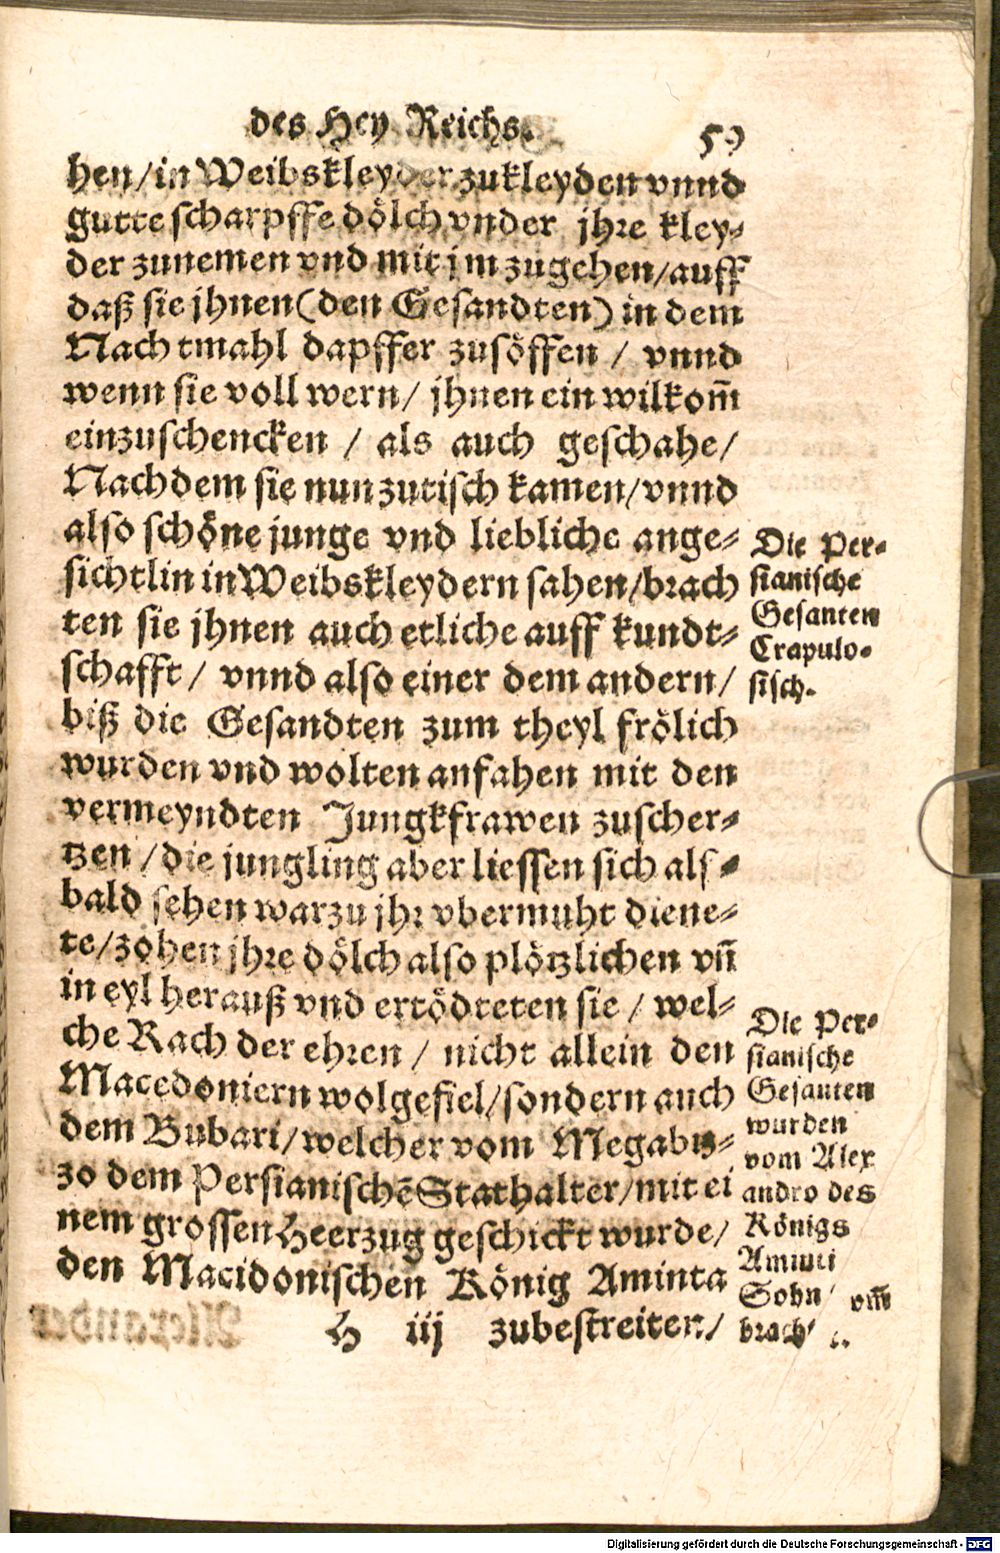 des Hey Reichs. 59
hen/in Weibskleyder zukleyden vnnd
gutte scharpffe dölch vnder jhre kley-
der zunemen vnd mit jm zugehen/auff
daß sie jhnen (den Gesandten) in dem
Nachtmahl dapffer zusöffen / vnnd
wenn sie voll wern/ jhnen ein wilkom̃
einzuschencken / als auch geschahe/
Nachdem sie nun zutisch kamen/vnnd
also schöne junge vnd liebliche ange-
sichtlin in Weibskleydern sahen/brach
ten sie jhnen auch etliche auff kundt-
schafft/ vnnd also einer dem andern/
biß die Gesandten zum theyl frölich
wurden vnd wolten anfahen mit den
vermeyndten Jungkfrawen zuscher-
tzen /die jungling aber liessen sich als-
bald sehen warzu jhr vbermuht diene-
te/zohen jhre dölch also plötzlichen vn̄
in eyl herauß vnd ertödteten sie / wel-
che Rach der ehren / nicht allein den
Macedoniern wolgefiel/sondern auch
dem Bubari/welcher vom Megabiz-
zo dem Persianischē Stathalter/mit ei
nem grossen Heerzug geschickt wurde/
den Macidonischen König Aminta
H iij zubestreiten/
Die Per-
sianische
Gesanten
Crapulo-
sisch.
Die Per-
sianische
Gesanten
wurden
vom Alex
andro des
Königs
Aminti
Sohn/ vm̃
brach
Digitalisierung gefördert durch die Deutsche Forschungsgemeinschaft - DFG